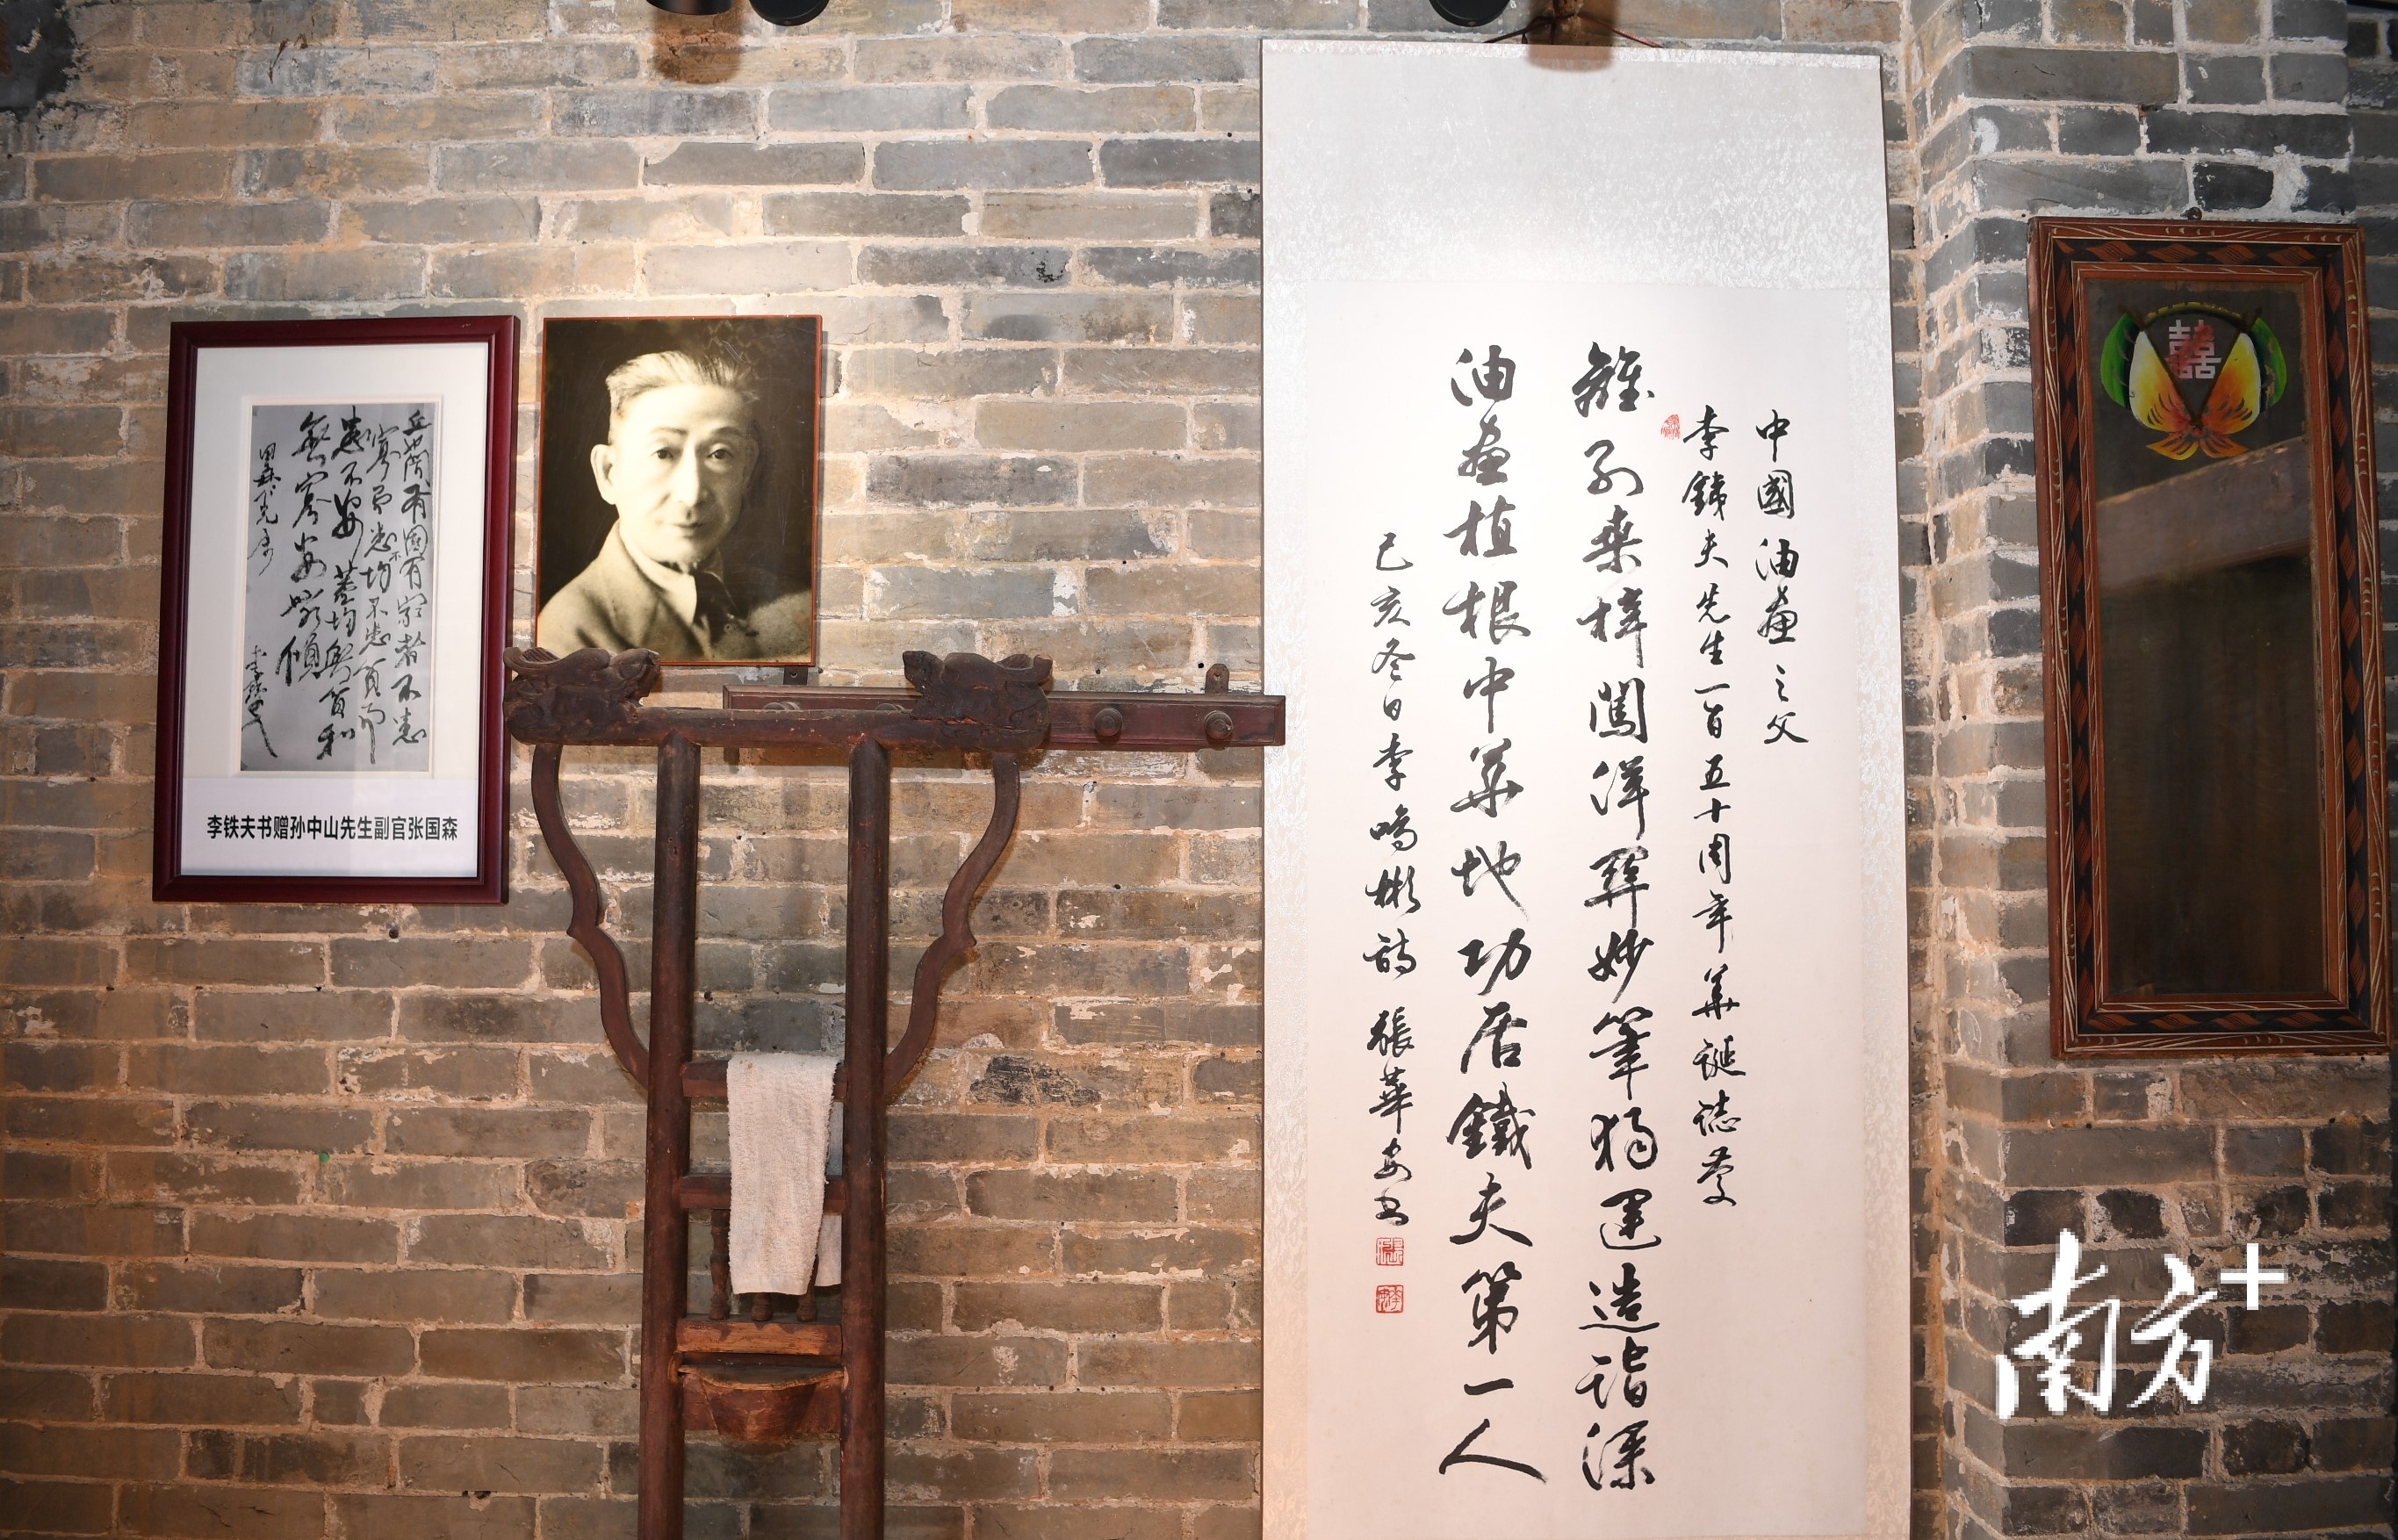 丘也聞有國有家者不患
寡而患不均不患貧而
患不安蓋均無貧和
無寡安無傾
李铁夫书赠孙中山先生副官张国森
中國油畫之父
李鐵夫先生一百五十周年華誕誌慶
離别桑梓闖洋妙筆獨運造詣深
油畫植根中華地功居鐵夫第一人
己亥冬日李鳴彬詩 張華安书
囍
南方+